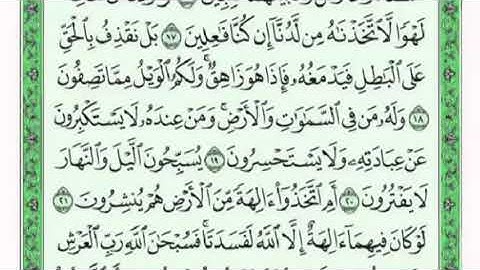 لَهْوًا لَّٱتَّخَذْنَٰهُ مِن لَّدُنَّآ إِن كُنَّا فَٰعِلِينَ ١٧ بَلْ نَقْذِفُ بِٱلْحَقِّ
عَلَى ٱلْبَٰطِلِ فَيَدْمَغُهُۥ فَإِذَا هُوَ زَاهِقٌ ۚ وَلَكُمُ ٱلْوَيْلُ مِمَّا تَصِفُونَ
١٨ وَلَهُۥ مَن فِى ٱلسَّمَٰوَٰتِ وَٱلْأَرْضِ ۚ وَمَنْ عِندَهُۥ لَا يَسْتَكْبِرُونَ
عَنْ عِبَادَتِهِۦ وَلَا يَسْتَحْسِرُونَ ١٩ يُسَبِّحُونَ ٱلَّيْلَ وَٱلنَّهَارَ
لَا يَفْتُرُونَ ٢٠ أَمِ ٱتَّخَذُوٓا۟ ءَالِهَةً مِّنَ ٱلْأَرْضِ هُمْ يُنشِرُونَ ٢١
لَوْ كَانَ فِيهِمَآ ءَالِهَةٌ إِلَّا ٱللَّهُ لَفَسَدَتَا ۚ فَسُبْحَٰنَ ٱللَّهِ رَبِّ ٱلْعَرْشِ